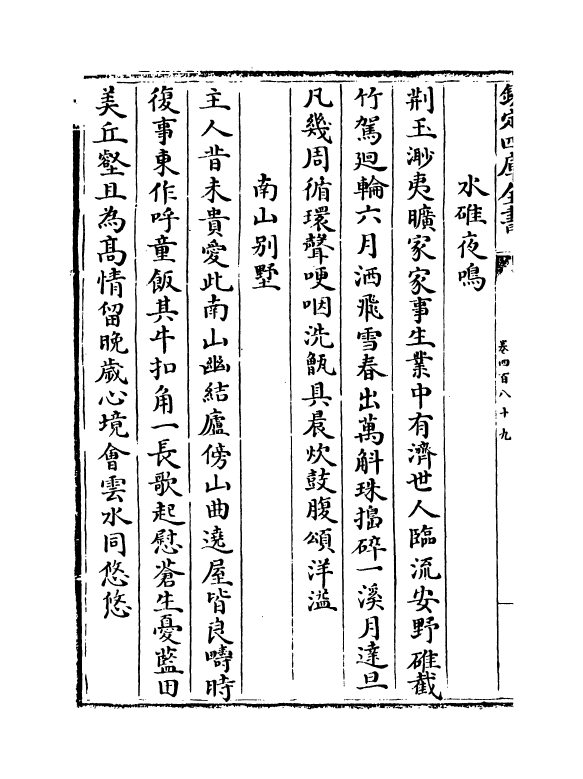 欽定四庫全書
卷四百八十九
水碓夜鳴
荆玉渺夷曠家家事生業中有濟世人臨流安野碓截
竹駕廻輪六月洒飛雪舂出萬斛珠搗碎一溪月達旦
凡幾周循環聲哽咽洗甑具晨炊鼓腹頌洋溢
南山别墅
主人昔未貴愛此南山幽結廬傍山曲遶屋皆良疇時
復事東作呼童飯其牛扣角一長歌起慰蒼生憂藍田
美丘壑且為髙情留晚歲心境會雲水同悠悠